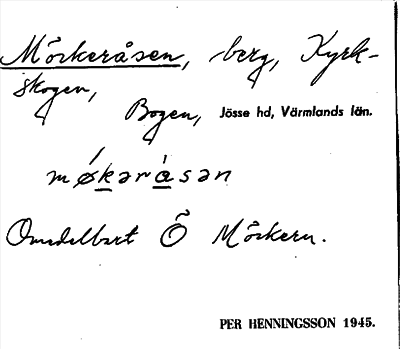 Mörkeråsen, berg, Kyrk-
skogen,
Bogen, Jösse hd, Värmlands län.
mø̀kəråsən
Omedelbart Ö Mörkern.
PER HENNINGSSON 1945.